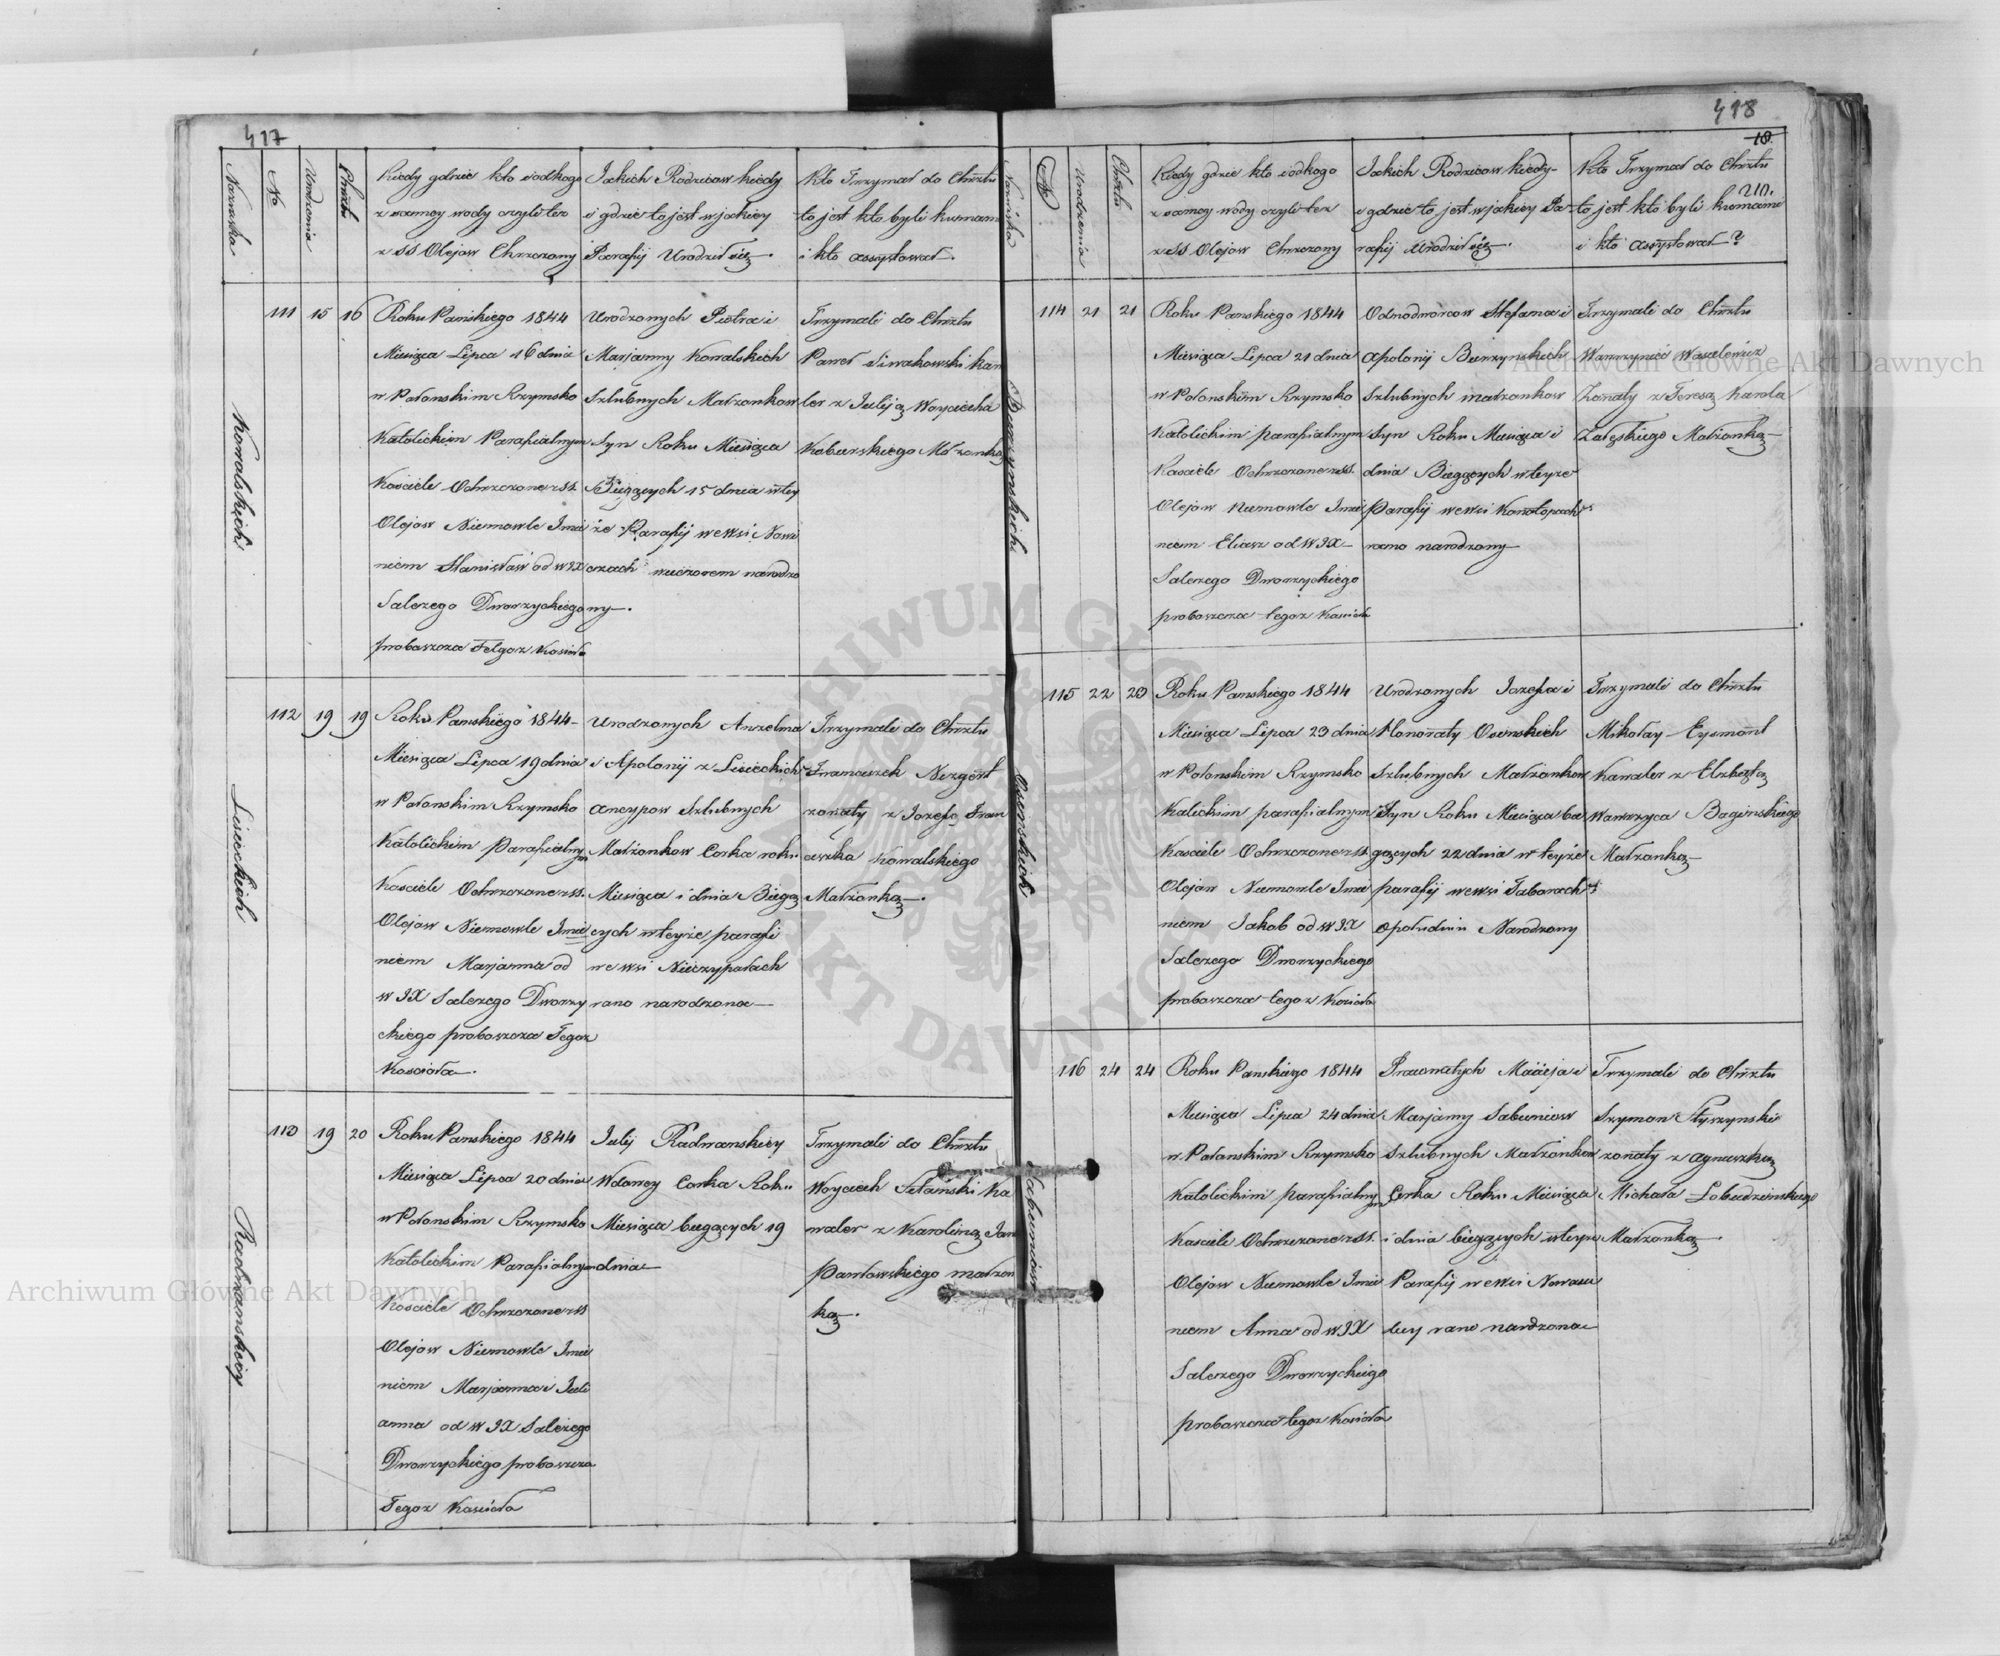 417
Nazwiska
No
Urodzenia
Chrztu
Kiedy gdzie kto i odkogo
z samey wody czyli tez
z SS Olejow Chrzczony
Jakich Rodzicow kiedy
i gdzie to jest w jakiey
Parafij Urodził się.
Kto Trzymał do Chrztu
to jest kto byli kumami
i kto assystował.
Kowalskich
111
15
16
Roku Panskiego 1844
Miesiąca Lipca 16 dnia
w Połonskim Rzymsko
Katolickim Parafialnym
Kosciele Ochrzczone z SS.
Olejow Niemowle Imie
niem Stanisław od W JX
Salezego Dworzyckiego
proboszcza Tegoz Koscioła
Urodzonych Piotra i
Marjanny Kowalskich
Szlubnych Małzonkow
Syn Roku Miesiąca
Bieżących 15 dnia w tey
że Parafij we wsi
czach wieczorem narodzo
ny.
Trzymali do Chrztu
Paweł Siwakowski kawa
ler z Julją Woyciecha
Kaburskiego Małzonką
Lisieckich
112
19
19
Roku Panskiego 1844
Miesiąca Lipca 19 dnia
w Połonskim Rzymsko
Katolickim Parafialnym
Kosciele Ochrzczone z SS.
Olejow Niemowle Imie
niem Marjanna od
W JX Salezego Dworzy
ckiego proboszcza Tegoz
Koscioła.
Urodzonych Anzelma
i Apolonij z Lisieckich
Ancypow Szlubnych
Małzonkow Corka roku
Miesiąca i dnia Biezą
cych w teyże parafi
we wsi Nieczypołach
rano narodzona
Trzymali do Chrztu
Franciszek Nezgört
zonaty z Jozefą Fran
ciszka Kowalskiego
Małzonką.
Radwanskiey
113
19
20
Roku Panskiego 1844
Miesiąca Lipca 20 dnia
w Połonskim Rzymsko
Katolickim Parafialnym
Kosciele Ochrzczone z SS
Olejow Niemowle Imie
niem Marjanna i Juli
anna od W JX Salezego
Dworzyckiego proboszcza
Tegoz Koscioła
Julij Radwanskiey
Wdowey Corka Roku
Miesiąca biezących 19
dnia
Trzymali do Chrztu
Woyciech Ka
waler z Karoliną Jana
Pawłowskiego małzon
ką.
418
18.
210.
Nazwiska
No
Urodzenia
Chrztu
Kiedy gdzie kto i odkogo
z samey wody czyli tez
z SS Olejow Chrzczony
Jakich Rodzicow kiedy
i gdzie to jest w jakiey Pa
rafij Urodził się.
Kto Trzymał do Chrztu
to jest kto byli kumami
i kto assystował?
Burzynskich
114
21
21
Roku Panskiego 1844
Miesiąca Lipca 21 dnia
w Połonskim Rzymsko
Katolickim parafialnym
Kosciele Ochrzczone z SS.
Olejow Niemowle Imie
niem Eliasz od W JX
Salezego Dworzyckiego
proboszcza tegoz Koscioła
Odnodworcow Stefana i
Apolonij Burzynskich
Szlubnych małzonkow
Syn Roku Miesiąca i
dnia Bieżących w teyze
Parafij we wsi Konotopach
rano narodzony
Trzymali do Chrztu
Wawrzyniec Wasalewicz
Zonaty z Teresą Karola
Załęskiego Małzonką
Osinskich
115
22
23
Roku Panskiego 1844
Miesiąca Lipca 23 dnia
w Połonskim Rzymsko
Kalickim parafialnym
Kosciele Ochrzczone z SS.
Olejow Niemowle Imie
niem Jakob od W JX
Salezego Dworzyckiego
proboszcza tegoz Koscioła
Urodzonych Jozefa i
Honoraty Osinskich
Szlubnych Małzonkow
Syn Roku Miesiąca bie
gących 22 dnia w teyże
parafij we wsi Taborach
opołudniu Narodzony
Trzymali do Chrztu
Mikołay Eysmont
Kawaler z Elzbietą
Wawrzyca Baginskiego
Małzonką
Sabuniow
116
24
24
Roku Panskiego 1844
Miesiąca Lipca 24 dnia
w Połonskim Rzymsko
Katolickim parafialnym
Kosciele Ochrzczone z SS.
Olejow Niemowle Imie
niem Anna od W JX
Salezego Dworzyckiego
proboszcza tegoz Koscioła
Pracowitych Macieja i
Marjanny Sabuniow
Szlubnych Małzonkow
Corka Roku Miesiąca
i dnia bieżących w teyze
Parafij we wsi Nowosie
łicy rano nardzona
Trzymali do Chrztu
Szymon Styrzynski
zonaty z Agnieszką
Michała Łobudzinskiego
Małzonką.
Archiwum Główne Akt Dawnych
Archiwum Główne Akt Dawnych
ARCHIWUM GŁÓWNE AKT DAWNYCH